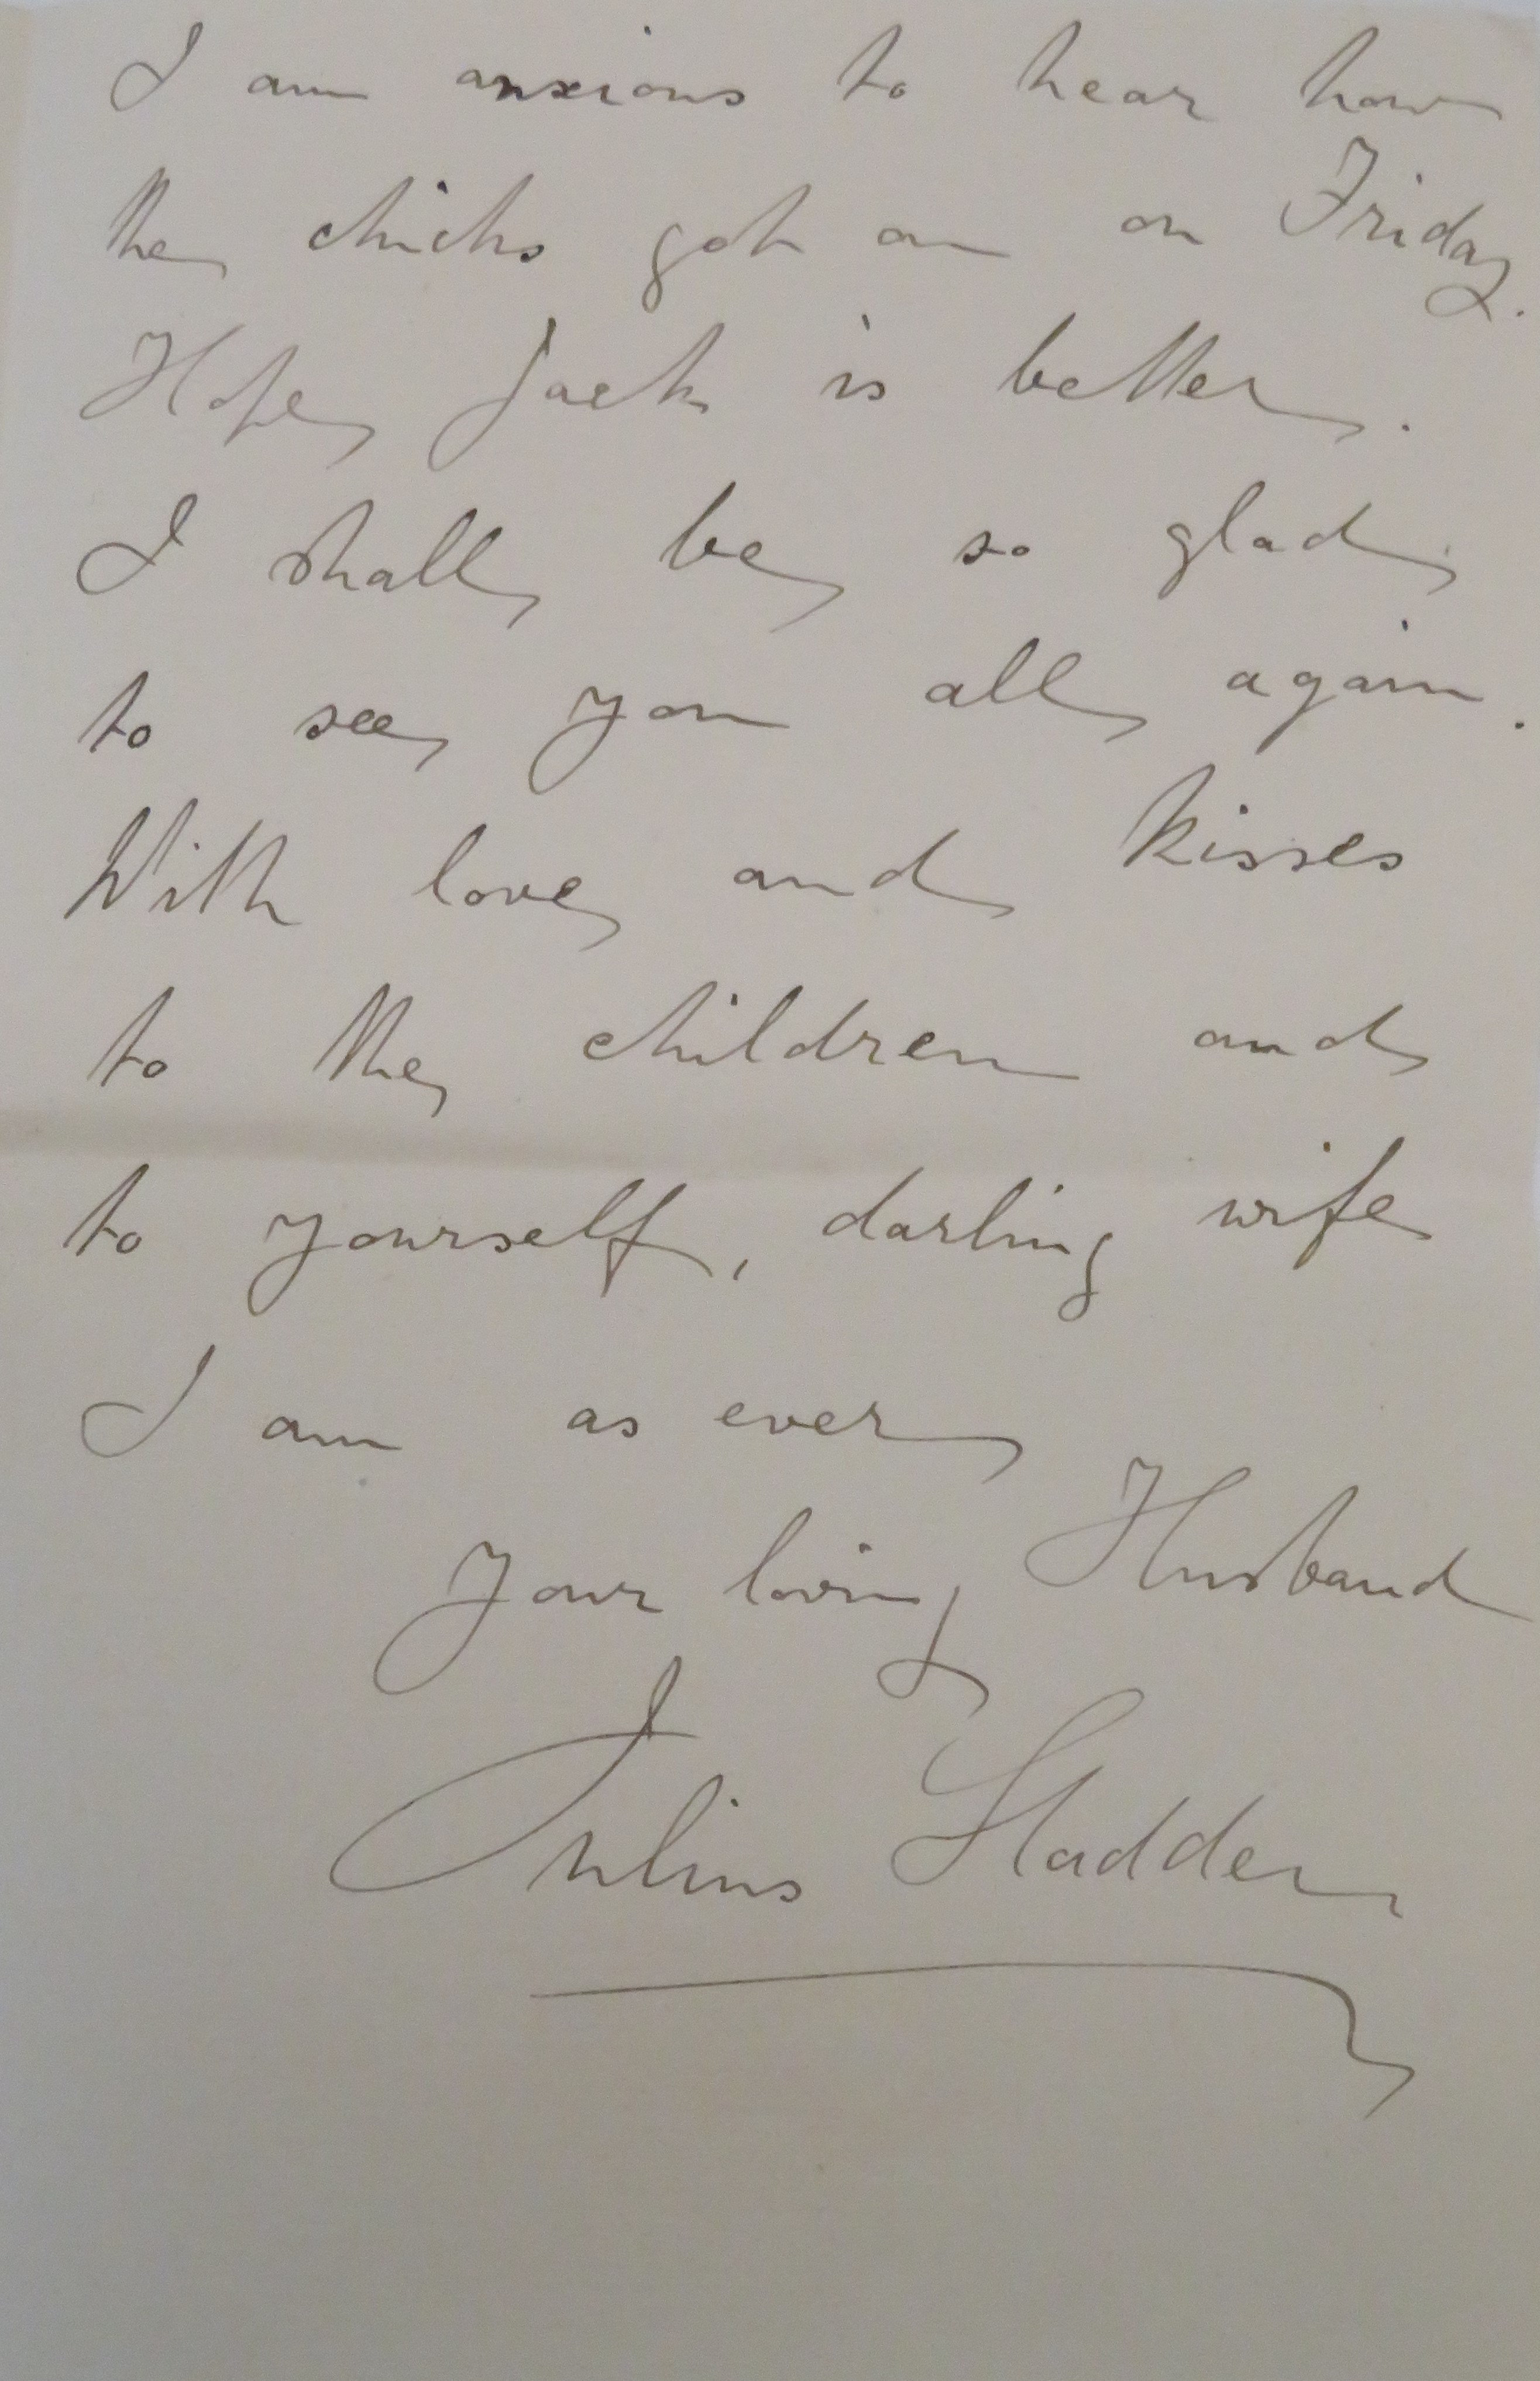 I am anxious to hear how
the chicks got on on Friday.
Hope Jack is better.
I shall be so glad
to see you all again.
With love and kisses
to the children and
to yourself, darling wife
I am as ever
Your loving Husband
Julius Sladden